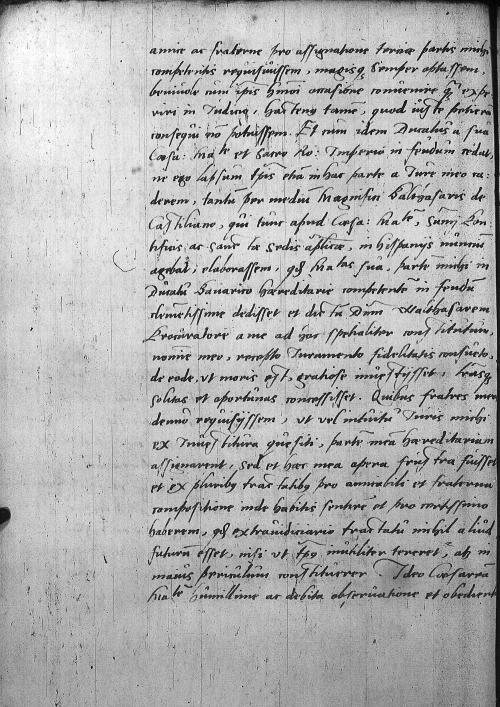 amice ac fraterne pro assignatione terciæ partis mihi
competentis requisiuissem, magisq; semper optassem,
beniuole cum ipsis hmoi occasione conuenire q̃ expe-
riri in Iudicio, hactenus tamẽ, quod iuste petiera
consequi nõ potuissem. Et cum idem Ducatus a sua
Cæsa: Mate et Sacro Ro: Imperio in feudum
ne ego lapsum tp̃is etiã in hac parte a Iure meo ca-
derem, tantũ per medium Magnifici Balthasaris de
Castiliano, qui tunc apud Cæsa: Mate, Summi Pon-
tificis ac Sanctæ Sedis aplicæ, in Hispanijs nunciũ
agebat, elaborassem, qd Matas sua, partẽ mihi in
Ducatu Bauarico hæreditarie competente in feudũ
clementissime dedisset et dictũ Dnm Balthasarem
Procuratore a me ad hoc specialiter constitutum
nomine meo, recepto Iuramento fidelitatis consueto,
de eode, ut moris est, gratiose inuestijsset, lrasq;
solitas et oportunas concessisset. Quibus fratres meos
denuo requisijssem, ut vel intuitu Iuris mihi
ex Inuestitura quesiti, partẽ meã hæreditariam
assignarent, Sed et hæc mea opera frustra fuisset
et ex pluribus tractatibus pro amicabili et fraterna
compositione inde habitis sentire et pro certissimo
haberem, qd extraiudiciario tractatu nihil aliud
futurũ esset, nisi ut tps inutiliter tereret, ac in
maius periculum constituerer. Ideo Cæsaream
Matẽ humillime ac debita obseruatione et obedient